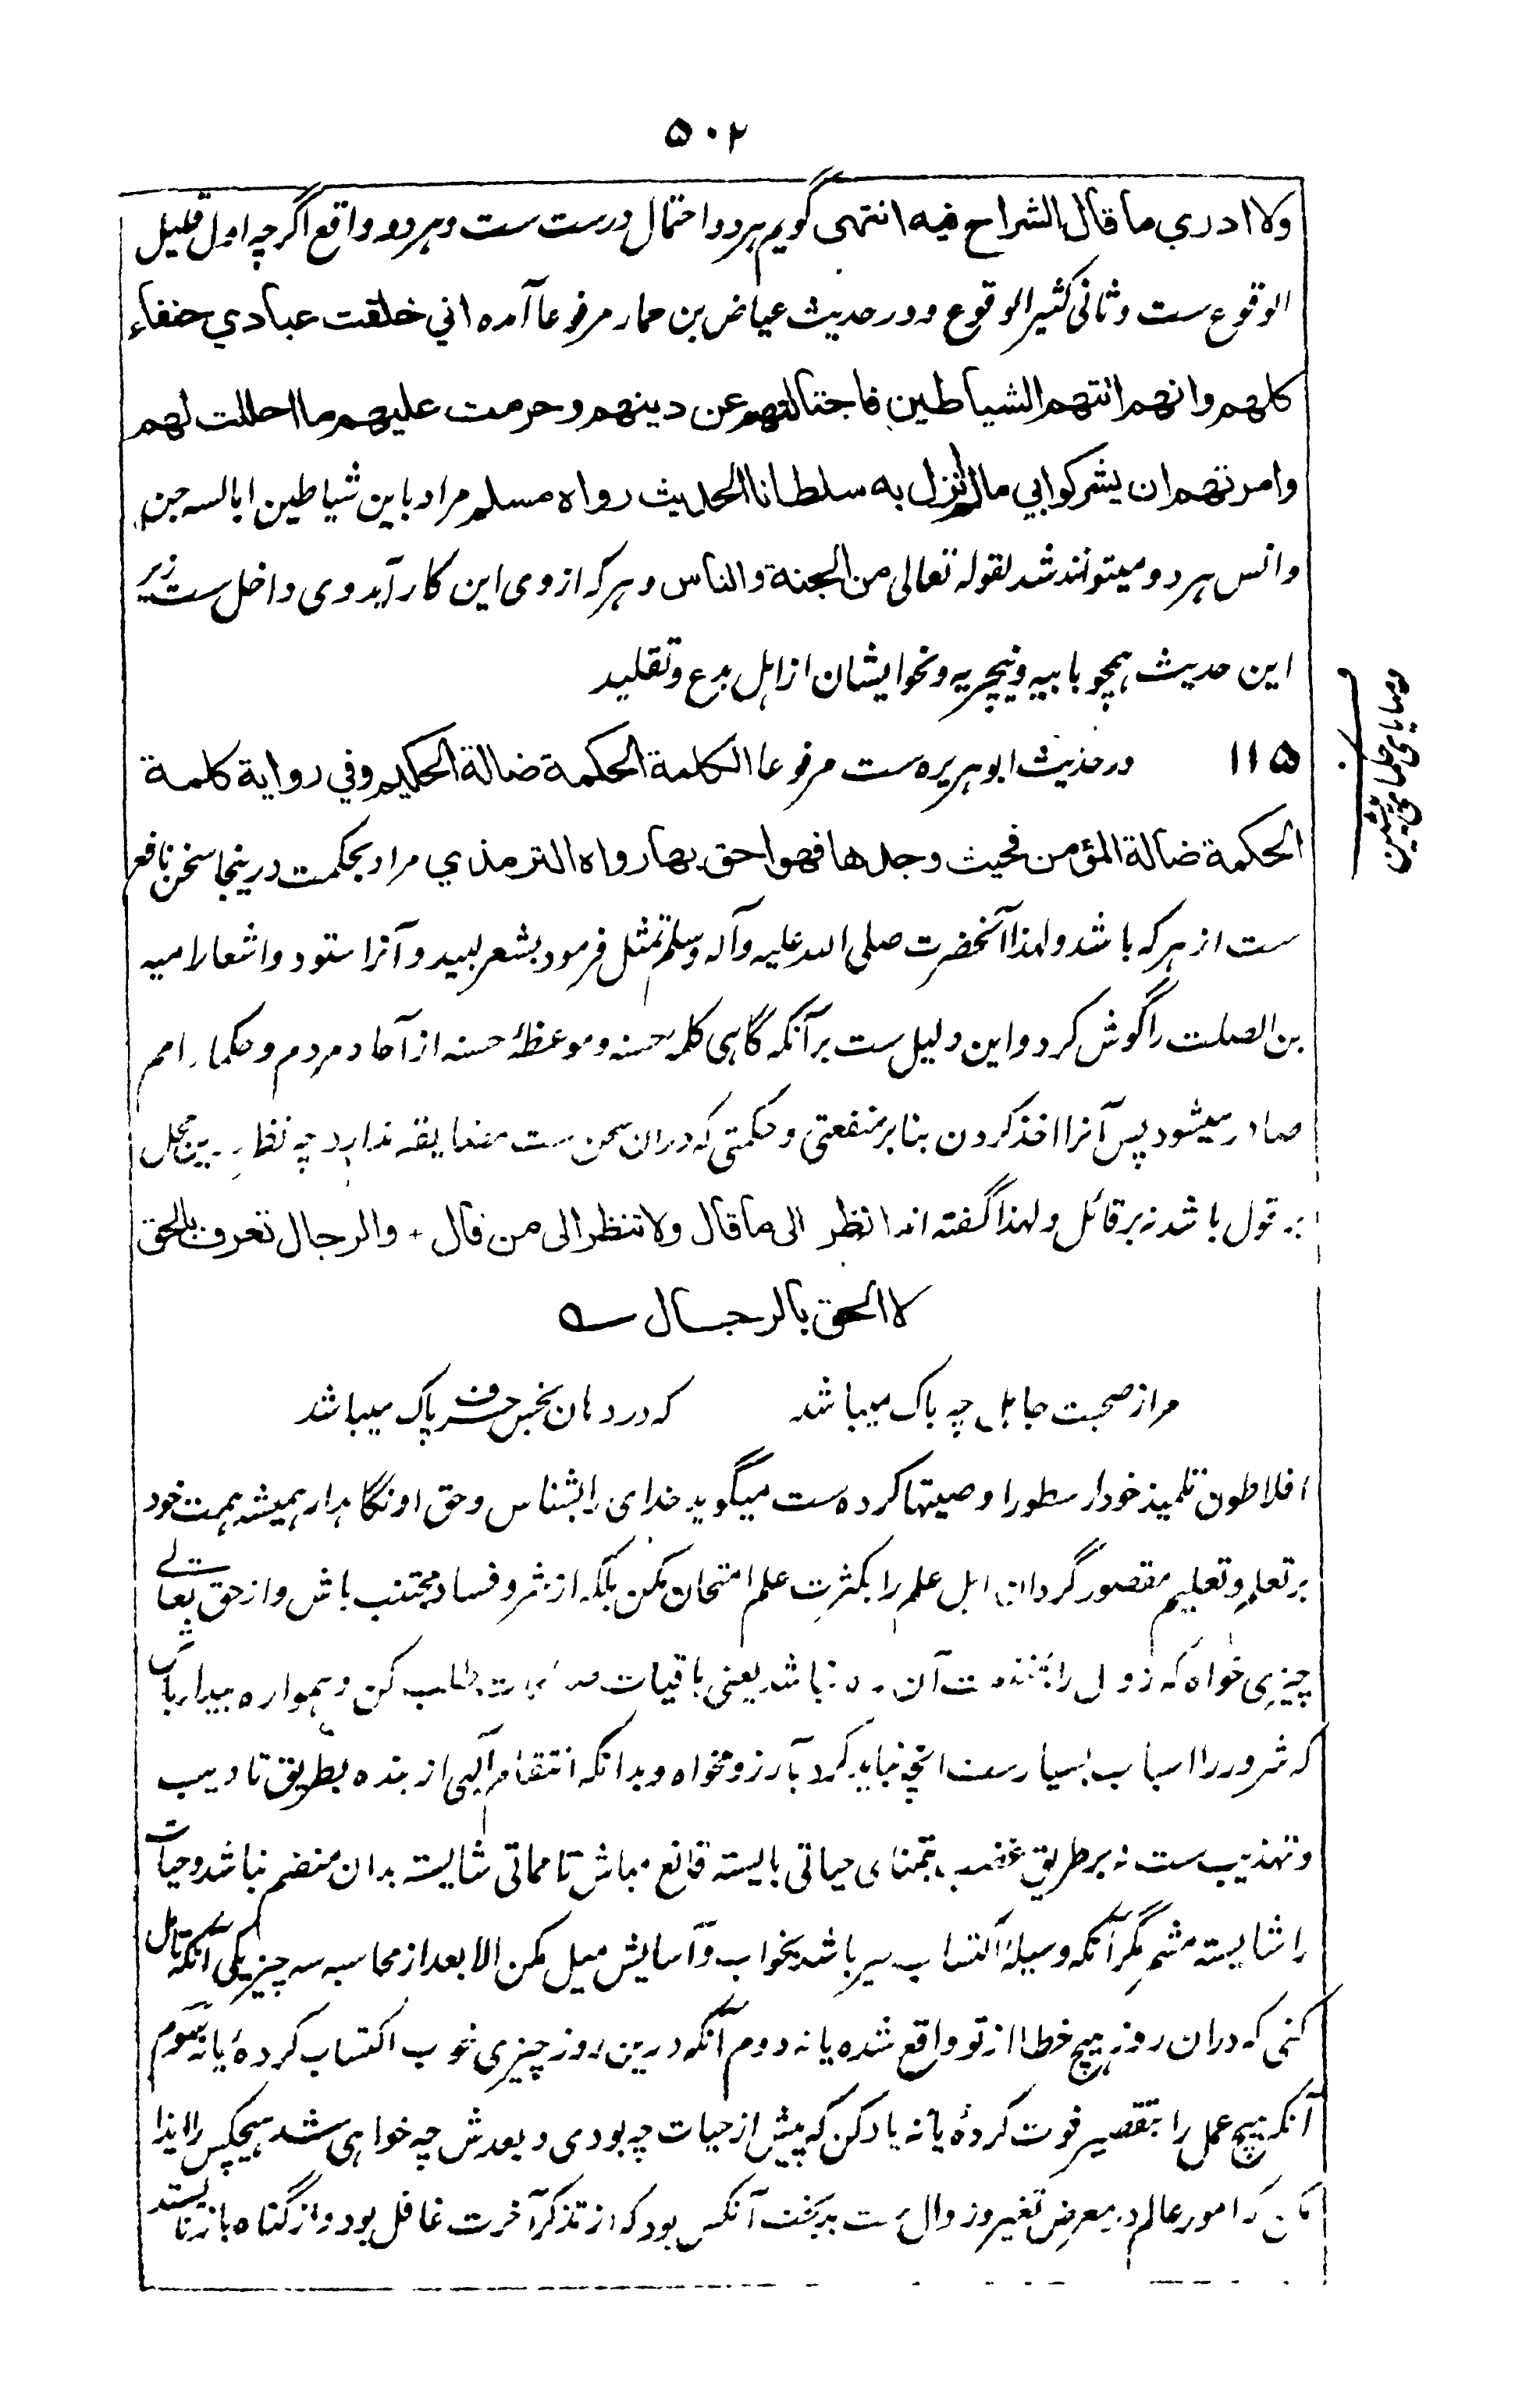 ۵۰۲
ولا ادري ما قال الشراح فيه انتهى گویم هر دو احتمال درست ست و هر دو واقع اگرچه اول قلیل
الوقوع ست و ثانی کثیر الوقوع و در حدیث عیاض بن حمار مرفوعا آمده اني خلقت عبادي حنفاء
كلهم وانهم اتتهم الشياطين فاجتالتهم عن دينهم وحرمت عليهم ما احللت لهم
وامرتهم ان يشركوا بي ما لم انزل به سلطانا الحديث رواه مسلم مراد باین شیاطین ابالسه جن
و انس هر دو میتوانند شد لقوله تعالى من الجنة والناس و هر که از وی این کار آید وی داخل ست زیر
این حدیث همچو بابیه و نیچریه و نحو ایشان از اهل بدع و تقلید
وصایای حکمای پیشین
۱۱۵ در حدیث ابو هریره ست مرفوعا الكلمة الحكمة ضالة الحكيم وفي رواية كلمة
الحكمة ضالة المؤمن فحيث وجدها فهو احق بها رواه الترمذي مراد بحکمت درینجا سخن نافع
ست از هر که باشد و لهذا آنحضرت صلی الله علیه و آله وسلم تمثل فرمود بشعر لبید و آنرا ستود و اشعار امیه
بن الصلت را گوش کرد و این دلیل ست بر آنکه گاهی کلمهٔ حسنه و موعظهٔ حسنه از آحاد مردم و حکماء امم
صادر میشود پس آنرا اخذ کردن بنابر منفعتی و حکمتی که دران سخن ست مضایقه ندارد چه نظر
بر قول باشد نه بر قائل و لهذا گفته اند انظر الى ما قال ولا تنظر الى من قال ، والرجال تعرف بالحق
لا الحق بالرجال ؎
مرا از صحبت جاهل چه باک میباشد که در دهان نجس حرف پاک میباشد
افلاطون تلمیذ خود ارسطو را وصیتها کرده ست میگوید خدای را بشناس و حق او نگاهدار همیشه همت خود
بر تعلم و تعلیم مقصور گردان اهل علم را بکثرت علم امتحان مکن بلکه از شر و فساد مجتنب باش و از حق تعالے
چیزی خواه که زوال را آن نباشد یعنی باقیات طلب کن و همواره بیدار باش
که شرور را اسباب بسیارست انچه نباید کرد بآرزو مخواه و بدانکه انتقام الٰهی از بنده بطریق تادیب
و تهذیب ست نه بر طریق غضب بتمنای حیاتی بایسته قانع مباش تا مماتی شایسته بدان منضم نباشد و حیات
را شایسته مشمر مگر آنکه وسیلهٔ اکتساب سیر باشد بخواب و آسایش میل مکن الا بعد از محاسبه سه چیز یکی آنکه تامل
کنی که دران روز هیچ خطا از تو واقع شده یا نه دوم آنکه درین روز چیزی خوب اکتساب کردهٔ یا نه سوم
آنکه هیچ عمل را بتقصیر فوت کردهٔ یا نه یاد کن که پیش از حیات چه بودی و بعدش چه خواهی شد هیچکس را ایذا
امور عالم در معرض تغیر و زوال ست بدبخت آنکس بود که از تذکر آخرت غافل بود و از گناه باز نایستد